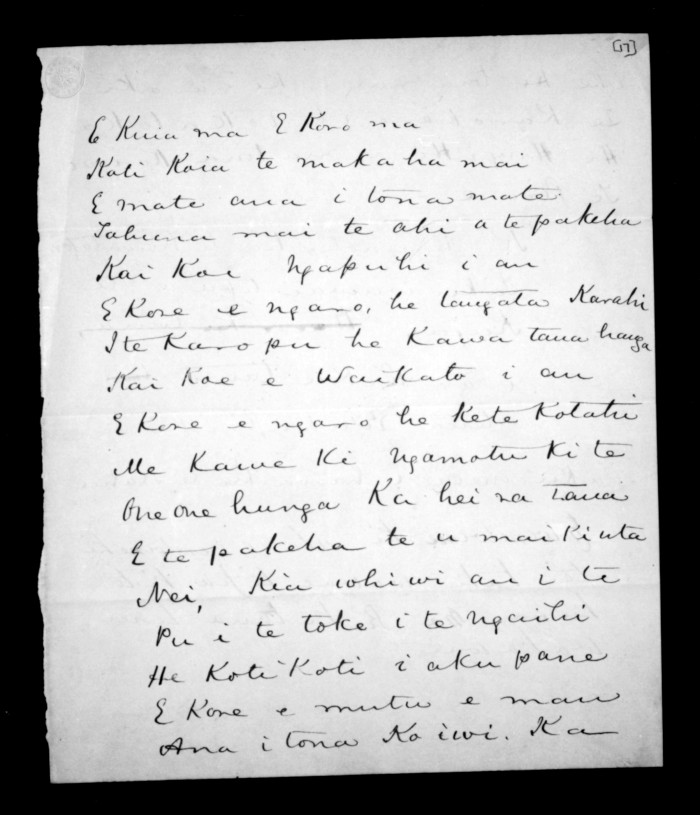 [17]
E Kuia ma E Koro ma
Koti Koia te maka ha mai
E mate ana i tona mate
Tahuna mai te ahi a te pakeha
Kai Koe Ngapuhi i au
E Kore e ngaro, he taugata Karahi
I te Karo pu he Kawa taua hanga
Kai Koe e Waikato i au
E Kore e ngaro he Kete Kotahi
Me Kawe Ki Ngamotu Ki te
One one hunga Ka hei na taua
E te pakeha te u mai Ki uta
Nei, Kia whiwi au i te
Pu i te toke i te ngaihi
He Koti Koti i aku pane
E Kore e mutu e mau
Ana i tona Ko iwi. Ka